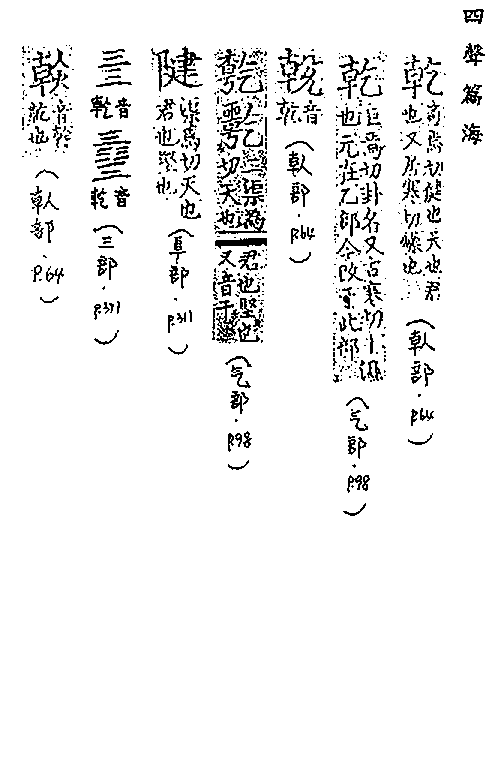 四聲篇海
乾 奇焉切健也天也君也又居寒切燥也（倝部．P.64）
乾 巨焉切卦名又古寒切小溼也元在乙部今改于此部（气部．P.98）
音乾（倝部．P.64）
三渠焉切天也君也堅也又音干（气部．P.98）
渠焉切天也君也堅也（阜部．P.311）
音乾 音乾（三部．P.371）
音乾乾也（倝部．P.64）